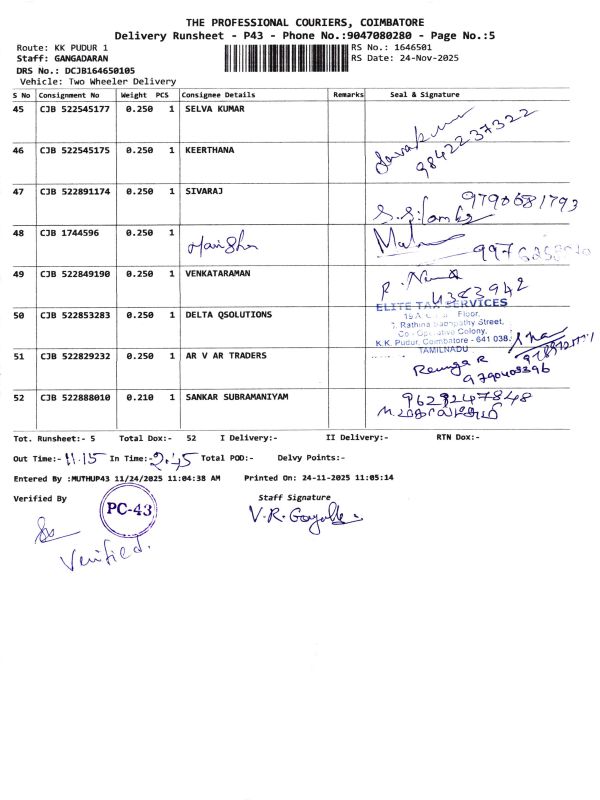 THE PROFESSIONAL COURIERS, COIMBATORE
Delivery Runsheet - P43 - Phone No.:9047080280 - Page No.:5
Route: KK PUDUR 1
RS No.: 1646501
Staff: GANGADARAN
RS Date: 24-Nov-2025
DRS No.: DCJB164650105
Vehicle: Two Wheeler Delivery
S No Consignment No Weight PCS Consignee Details Remarks Seal & Signature
45 CJB 522545177 0.250 1 SELVA KUMAR
9842237322
46 CJB 522545175 0.250 1 KEERTHANA
47 CJB 522891174 0.250 1 SIVARAJ
9790681793
48 CJB 1744596 0.250 1
49 CJB 522849190 0.250 1 VENKATARAMAN
50 CJB 522853283 0.250 1 DELTA QSOLUTIONS
ELITE TAX SERVICES
Floor,
Rathina Street,
Co - Operative Colony,
K.K. Pudur, Coimbatore - 641 038.
TAMILNADU
51 CJB 522829232 0.250 1 AR V AR TRADERS
Renuga R
9790403396
52 CJB 522888010 0.210 1 SANKAR SUBRAMANIYAM
9629247848
Tot. Runsheet:- 5 Total Dox:- 52 I Delivery:- II Delivery:- RTN Dox:-
Out Time:- 11.15 In Time:- 2.45 Total POD:- Delvy Points:-
Entered By :MUTHUP43 11/24/2025 11:04:38 AM Printed On: 24-11-2025 11:05:14
Verified By
PC-43
Staff Signature
Verified.